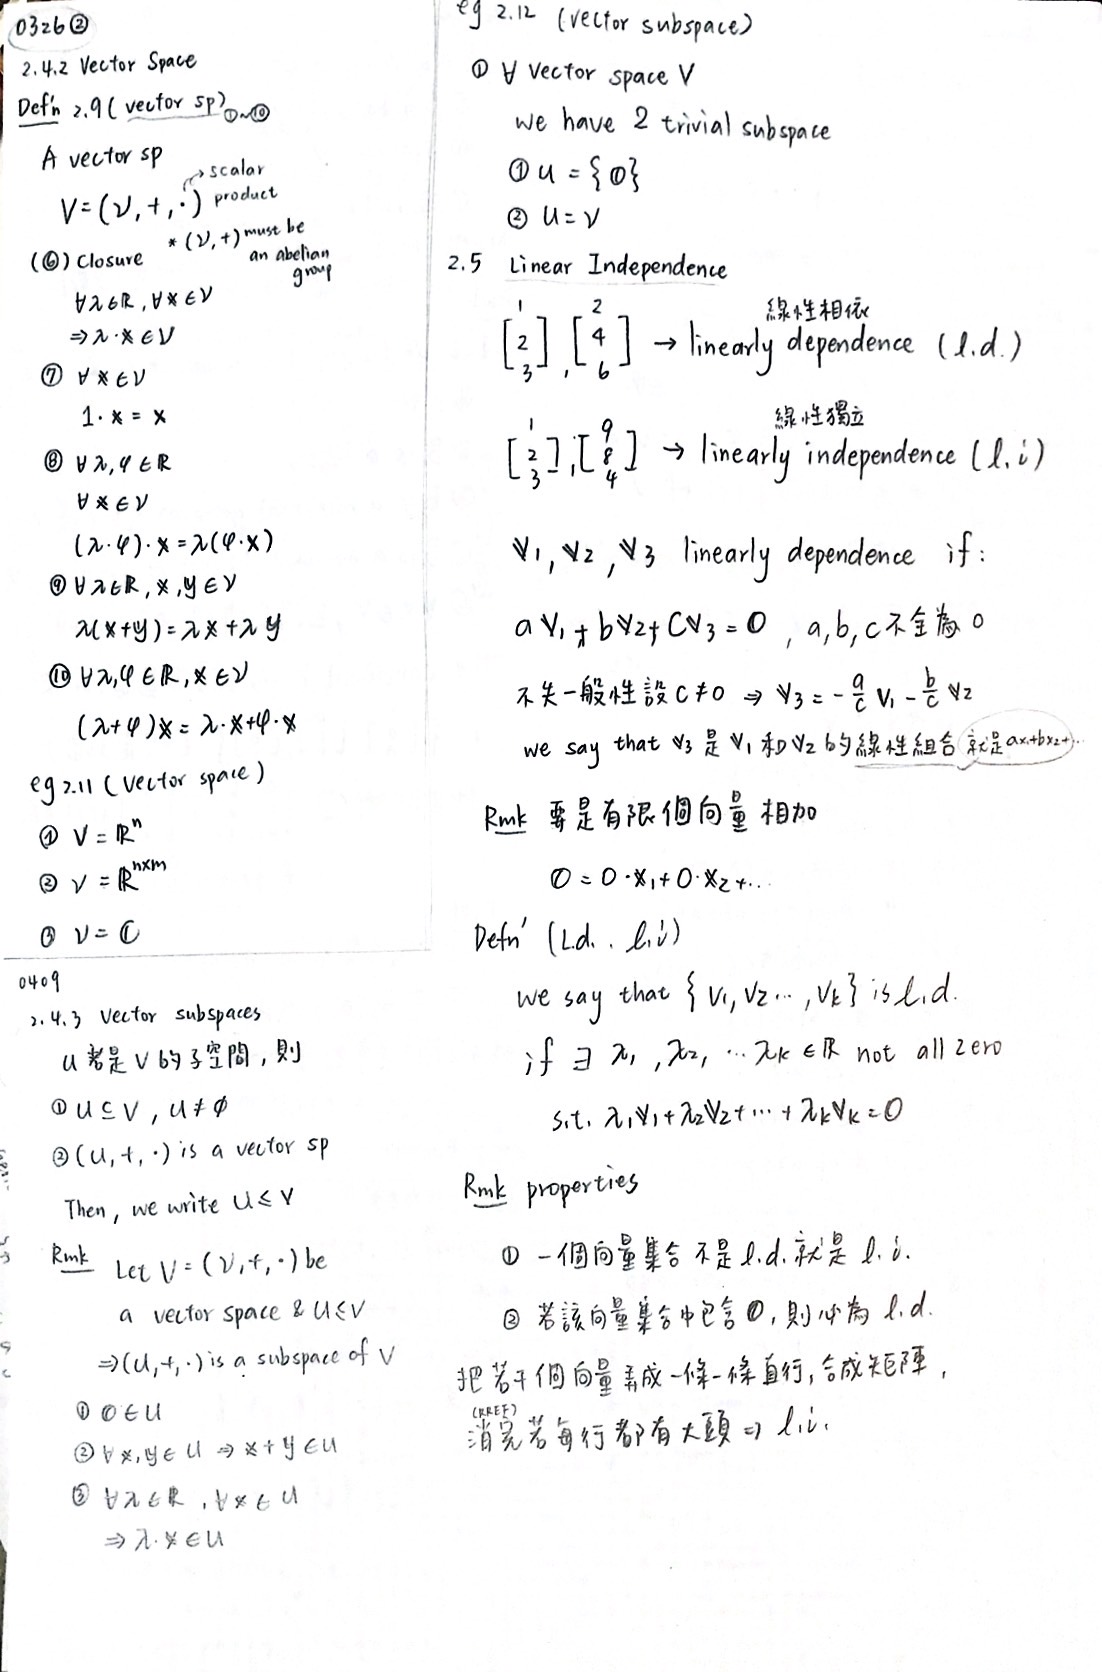 0326②
2.4.2 Vector Space
Def'n 2.9 (vector sp) ①~⑩
A vector sp
V=(𝒱,+,·) → scalar product
* (𝒱,+) must be an abelian group
(⑥) Closure
∀λ∈ℝ, ∀𝕩∈𝒱
⇒ λ·𝕩∈𝒱
⑦ ∀𝕩∈𝒱
1·𝕩 = 𝕩
⑧ ∀λ,φ∈ℝ
∀𝕩∈𝒱
(λ·φ)·𝕩=λ(φ·𝕩)
⑨ ∀λ∈ℝ, 𝕩,𝕪∈𝒱
λ(𝕩+𝕪)=λ𝕩+λ𝕪
⑩ ∀λ,φ∈ℝ, 𝕩∈𝒱
(λ+φ)𝕩=λ·𝕩+φ·𝕩
eg 2.11 (vector space)
① V=ℝⁿ
② 𝒱=ℝⁿˣᵐ
③ 𝒱=ℂ
0409
2.4.3 Vector subspaces
U 若是 V 的子空間, 則
① U⊆V, U≠∅
② (U,+,·) is a vector sp
Then, we write U≤V
Rmk Let V=(𝒱,+,·) be
a vector space & U≤V
⇒(U,+,·) is a subspace of V
① 𝟘∈U
② ∀𝕩,𝕪∈U ⇒ 𝕩+𝕪∈U
③ ∀λ∈ℝ, ∀𝕩∈U
⇒ λ·𝕩∈U
eg 2.12 (vector subspace)
① ∀ Vector space V
we have 2 trivial subspace
① U={𝟘}
② U=𝒱
2.5 Linear Independence
線性相依
[1 2 3], [2 4 6] → linearly dependence (l.d.)
線性獨立
[1 2 3], [9 8 4] → linearly independence (l.i)
𝕧₁, 𝕧₂, 𝕧₃ linearly dependence if:
a𝕧₁+b𝕧₂+c𝕧₃=𝟘, a,b,c不全為0
不失一般性設c≠0 ⇒ 𝕧₃=-a/c v₁-b/c 𝕧₂
we say that 𝕧₃ 是 𝕧₁ 和 𝕧₂ 的線性組合 就是ax₁+bx₂+...
Rmk 要是有限個向量相加
𝟘=0·𝕩₁+0·𝕩₂+...
Defn' (l.d. . l.i)
we say that {v₁,v₂...,vₖ} is l.d.
if ∃ λ₁,λ₂,...λₖ∈ℝ not all zero
s.t. λ₁𝕧₁+λ₂𝕧₂+...+λₖ𝕧ₖ=𝟘
Rmk properties
① 一個向量集合不是l.d.就是l.i.
② 若該向量集合中包含𝟘, 則必為l.d.
把若干個向量弄成一條一條直行, 合成矩陣,
(RREF)
消完若每行都有大頭⇒ l.i.